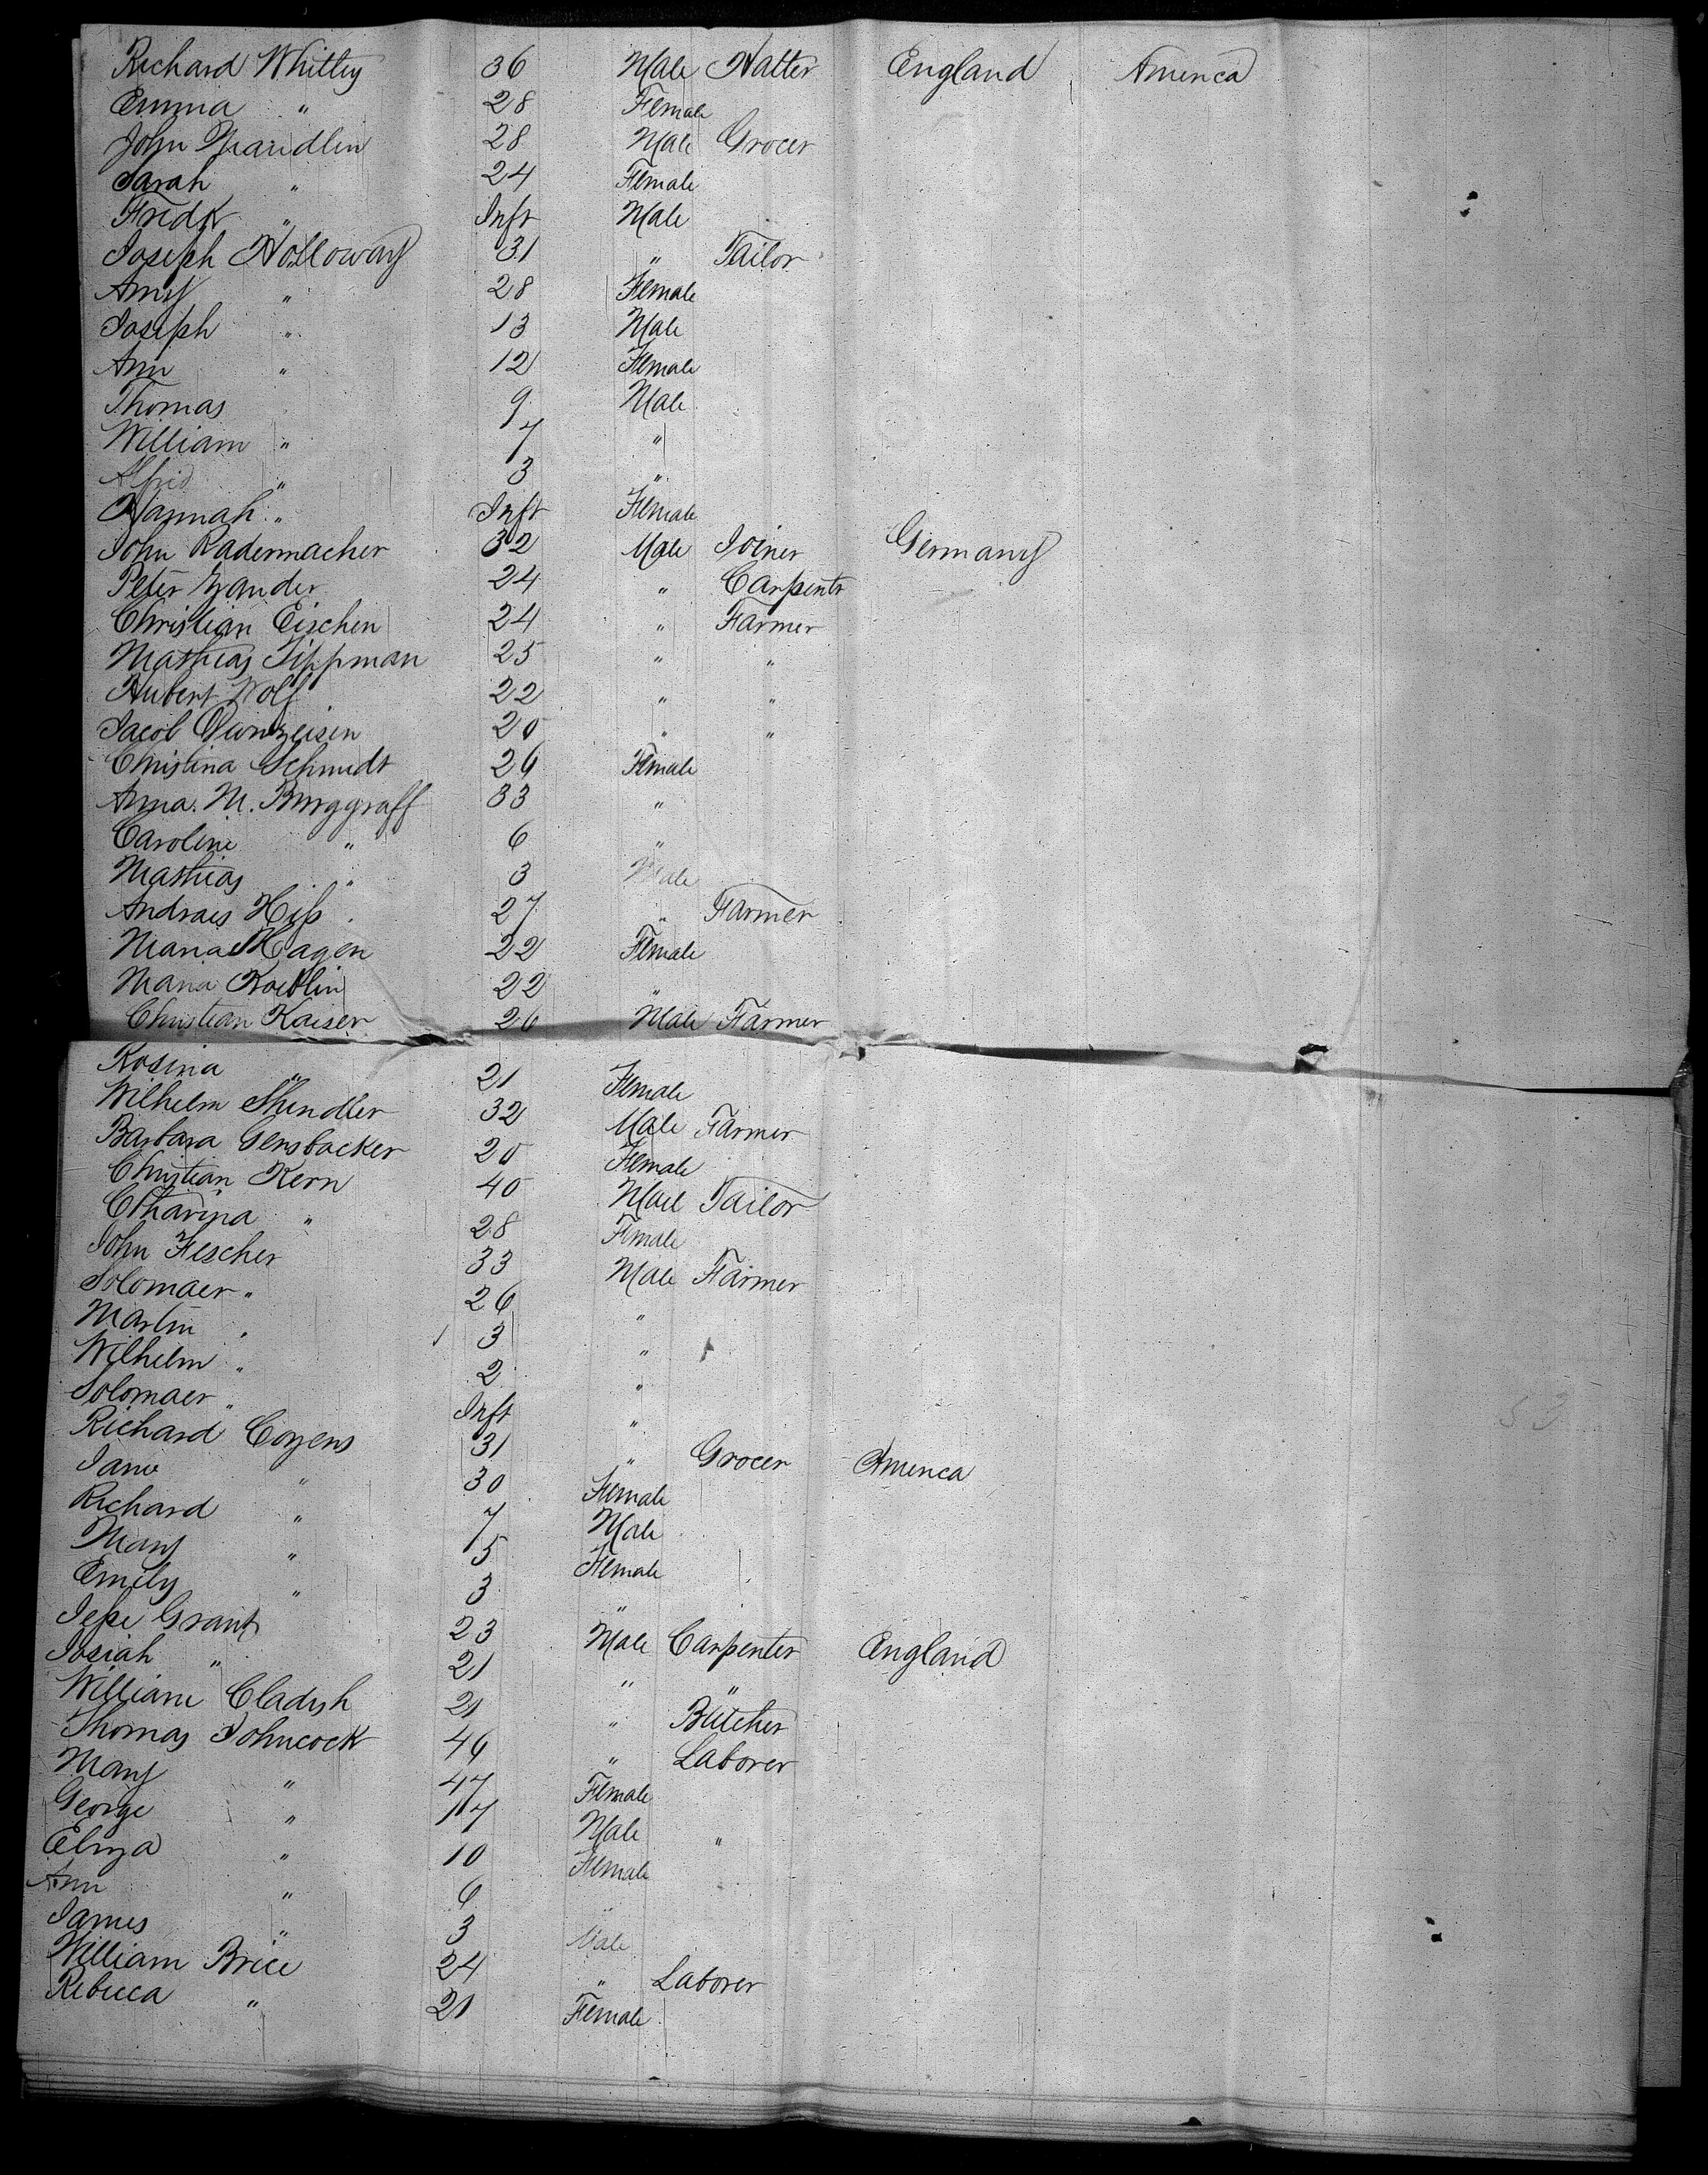 Richard Whittey 36 Male Hatter England America
Emma " 28 Female
John Mandlin 28 Male Grocer
Sarah " 24 Female
Fredk " Inft Male
Joseph Holloway 31 " Tailor
Amy " 28 Female
Joseph " 13 Male
Ann " 12 Female
Thomas 9 Male
William " 7 "
Alfrid " 3 "
Hannah " Inft Female
John Radermacher 32 Male Joiner Germany
Peter Zander 24 " Carpentr
Christian Eischen 24 " Farmer
Mathias Tippman 25 " "
Hubert Wolf 22 " "
Jacob 20 " "
Christina Schmidt 26 Female
Anna. M. Burggraff 33 "
Caroline " 6 "
Mathias " 3 Male
Andraes Hiss 27 " Farmer
Maria Hagen 22 Female
Maria Koeblin 22 "
Christian Kaiser 26 Male Farmer
Rosina " 21 Female
Wilhelm Shindler 32 Male Farmer
Barbara Gersbacker 20 Female
Christian Kern 40 Male Tailor
Catharina " 28 Female
John Fischer 33 Male Farmer
Solomaer " 26 "
Martin " 3 "
Wilhelm " 2 "
Solomaer " Inft "
Richard Cozens 31 " Grocer America
Jane " 30 Female
Richard " 7 Male
Mary " 5 Female
Emily " 3 "
Jesse Grant 23 Male Carpenter England
Josiah " 21 " "
William Cladish 21 " Butcher
Thomas Johncock 46 " Laborer
Mary " 47 Female
George " 17 Male "
Eliza " 10 Female
Ann " 6 "
James " 3 Male
William Brice 24 " Laborer
Rebecca " 21 Female